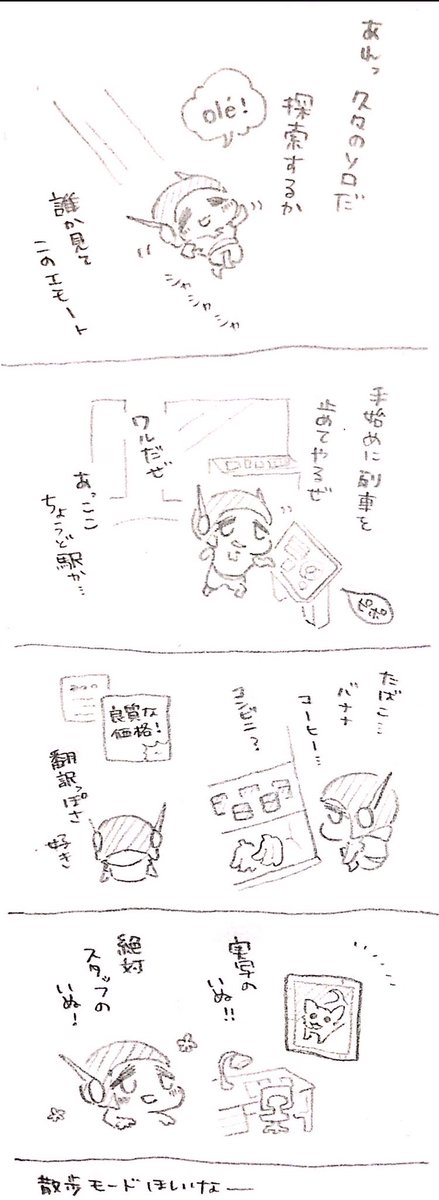 あれっ 久々のソロだ
探索するか
olé!
シャシャシャシャ
誰か見て
このエモート
手始めに列車を
止めてやるぜ
ピポ
ワルだぜ
あっここ
ちょうど駅か…
たばこ…
バナナ
コーヒー…
コンビニ?
良質な
価格!
翻訳っぽさ
好き
実写の
いぬ!!
絶対
スタッフの
いぬ!
散歩モードほしいなー